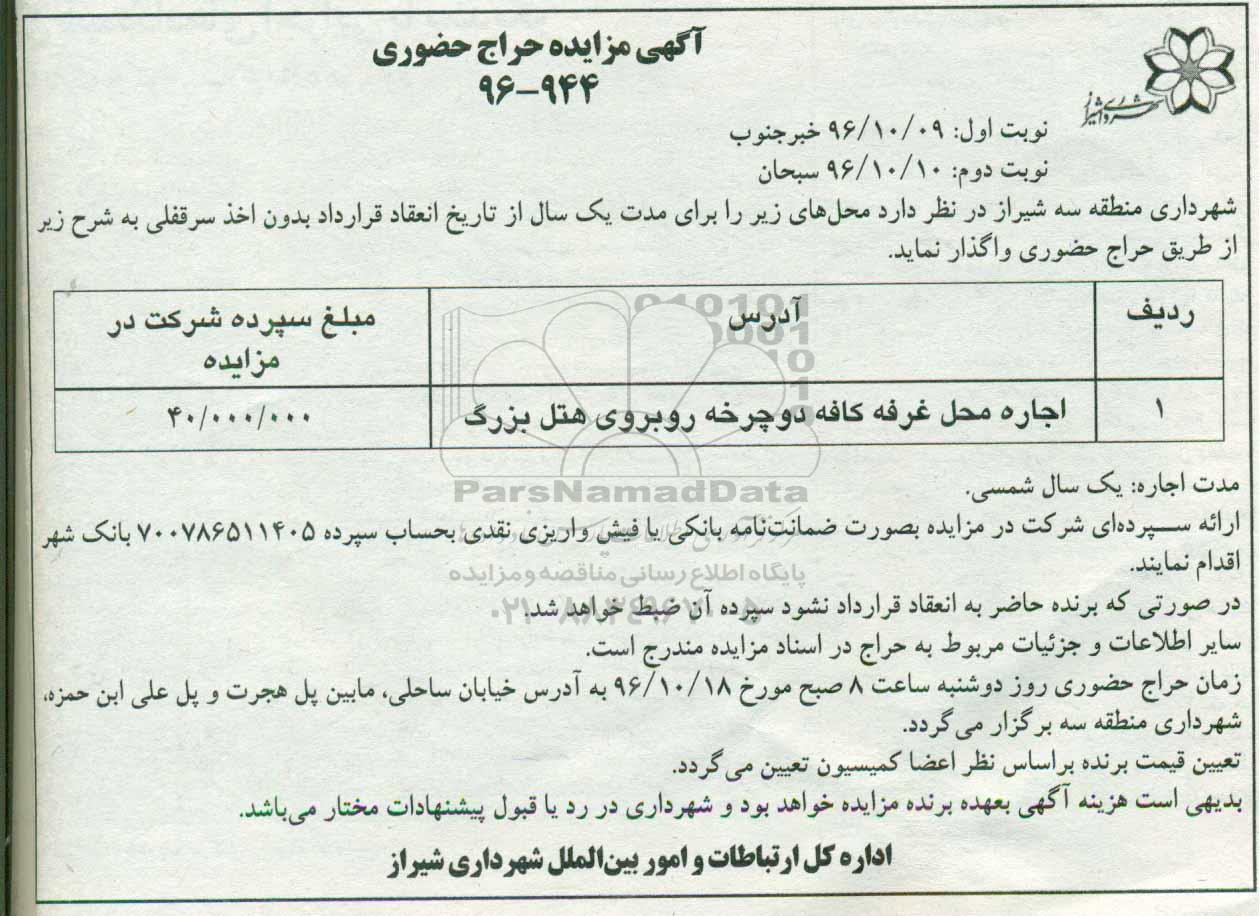 شهرداری شیراز
آگهی مزایده حراج حضوری
۹۶-۹۴۴
نوبت اول: ۹۶/۱۰/۰۹ خبرجنوب
نوبت دوم: ۹۶/۱۰/۱۰ سبحان
شهرداری منطقه سه شیراز در نظر دارد محل‌های زیر را برای مدت یک سال از تاریخ انعقاد قرارداد بدون اخذ سرقفلی به شرح زیر
از طریق حراج حضوری واگذار نماید.
ردیف آدرس مبلغ سپرده شرکت در
مزایده
۱ اجاره محل غرفه کافه دوچرخه روبروی هتل بزرگ ۴۰/۰۰۰/۰۰۰
ParsNamadData
مدت اجاره: یک سال شمسی.
ارائه سپرده‌ای شرکت در مزایده بصورت ضمانت‌نامه بانکی یا فیش واریزی نقدی بحساب سپرده ۷۰۰۷۸۶۵۱۱۴۰۵ بانک شهر
اقدام نمایند.
پایگاه اطلاع رسانی مناقصه و مزایده
در صورتی که برنده حاضر به انعقاد قرارداد نشود سپرده آن ضبط خواهد شد.
سایر اطلاعات و جزئیات مربوط به حراج در اسناد مزایده مندرج است.
زمان حراج حضوری روز دوشنبه ساعت ۸ صبح مورخ ۹۶/۱۰/۱۸ به آدرس خیابان ساحلی، مابین پل هجرت و پل علی ابن حمزه،
شهرداری منطقه سه برگزار می‌گردد.
تعیین قیمت برنده براساس نظر اعضا کمیسیون تعیین می‌گردد.
بدیهی است هزینه آگهی بعهده برنده مزایده خواهد بود و شهرداری در رد یا قبول پیشنهادات مختار می‌باشد.
اداره کل ارتباطات و امور بین‌الملل شهرداری شیراز